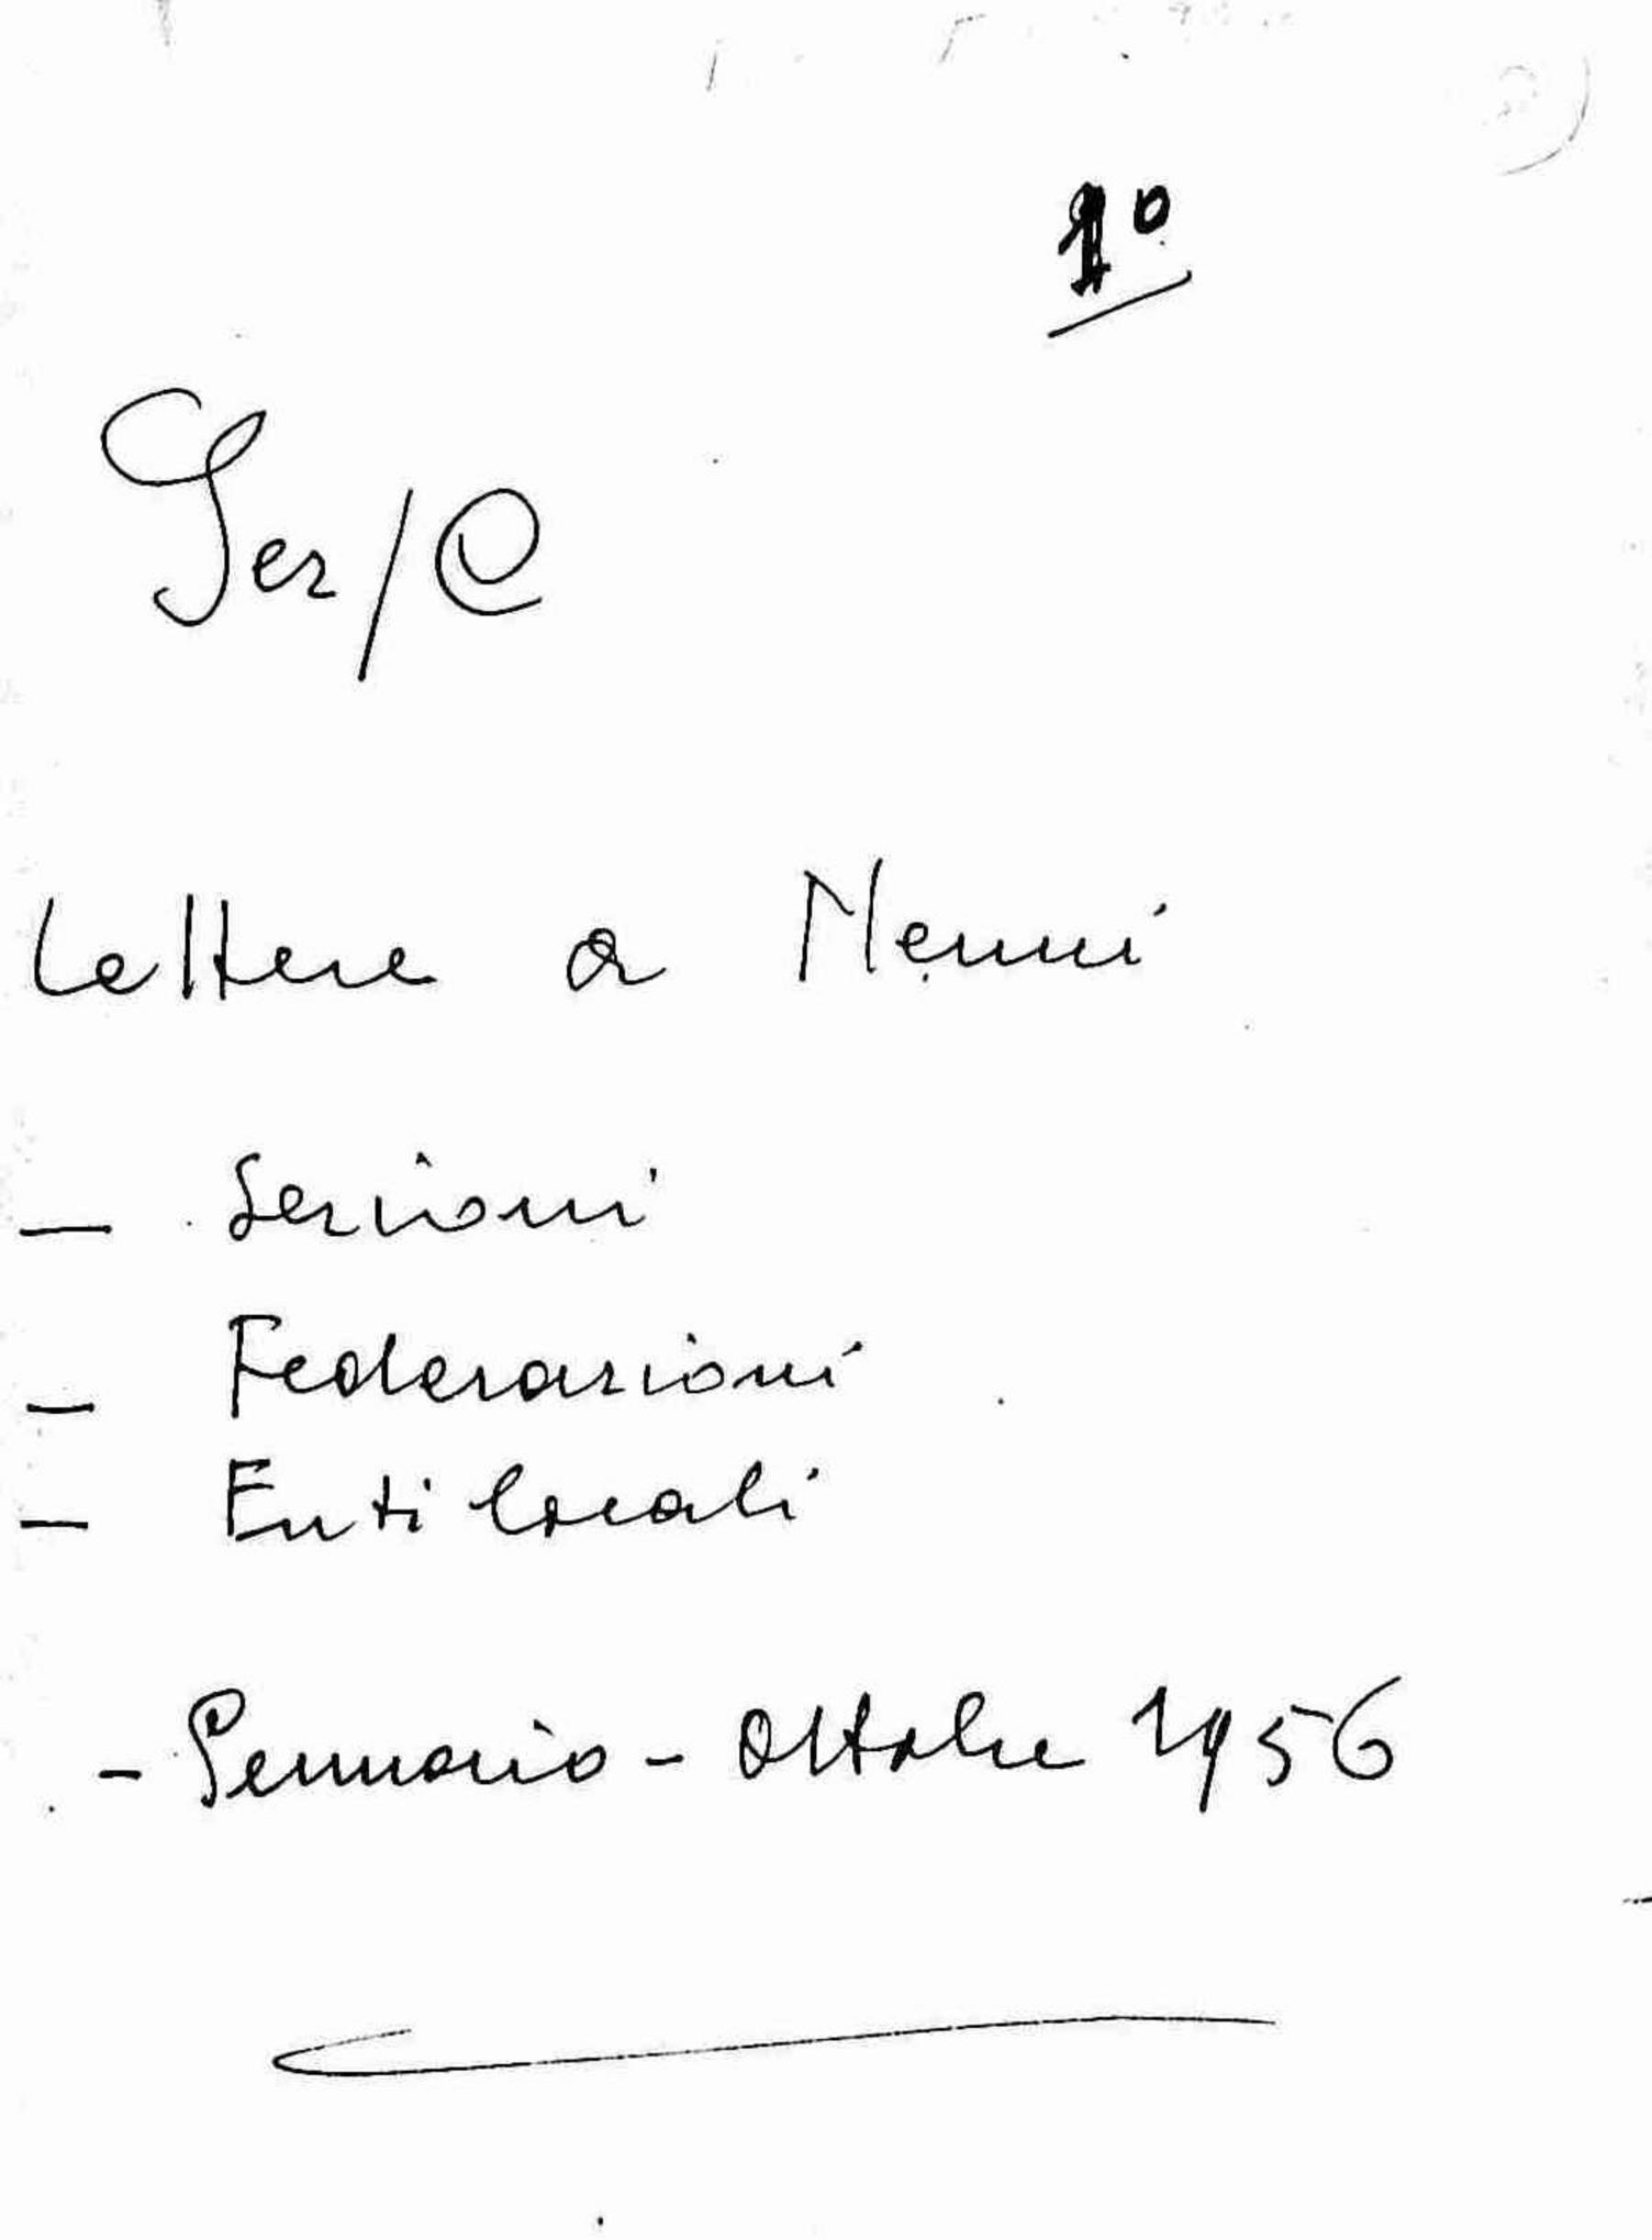 1°
Ser/C
Lettere a Nenni
- Sezioni
- Federazioni
- Enti locali
- Gennaio - Ottobre 1956